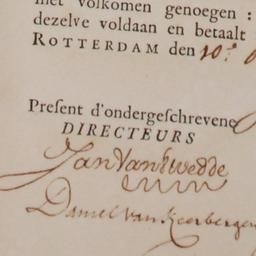 met volkomen genoegen :
dezelve voldaan en betaalt
ROTTERDAM den 10.e
Preſent d'ondergeſchrevene
DIRECTEURS
Jan Van Lwedde
Daniel Van Keerbergen